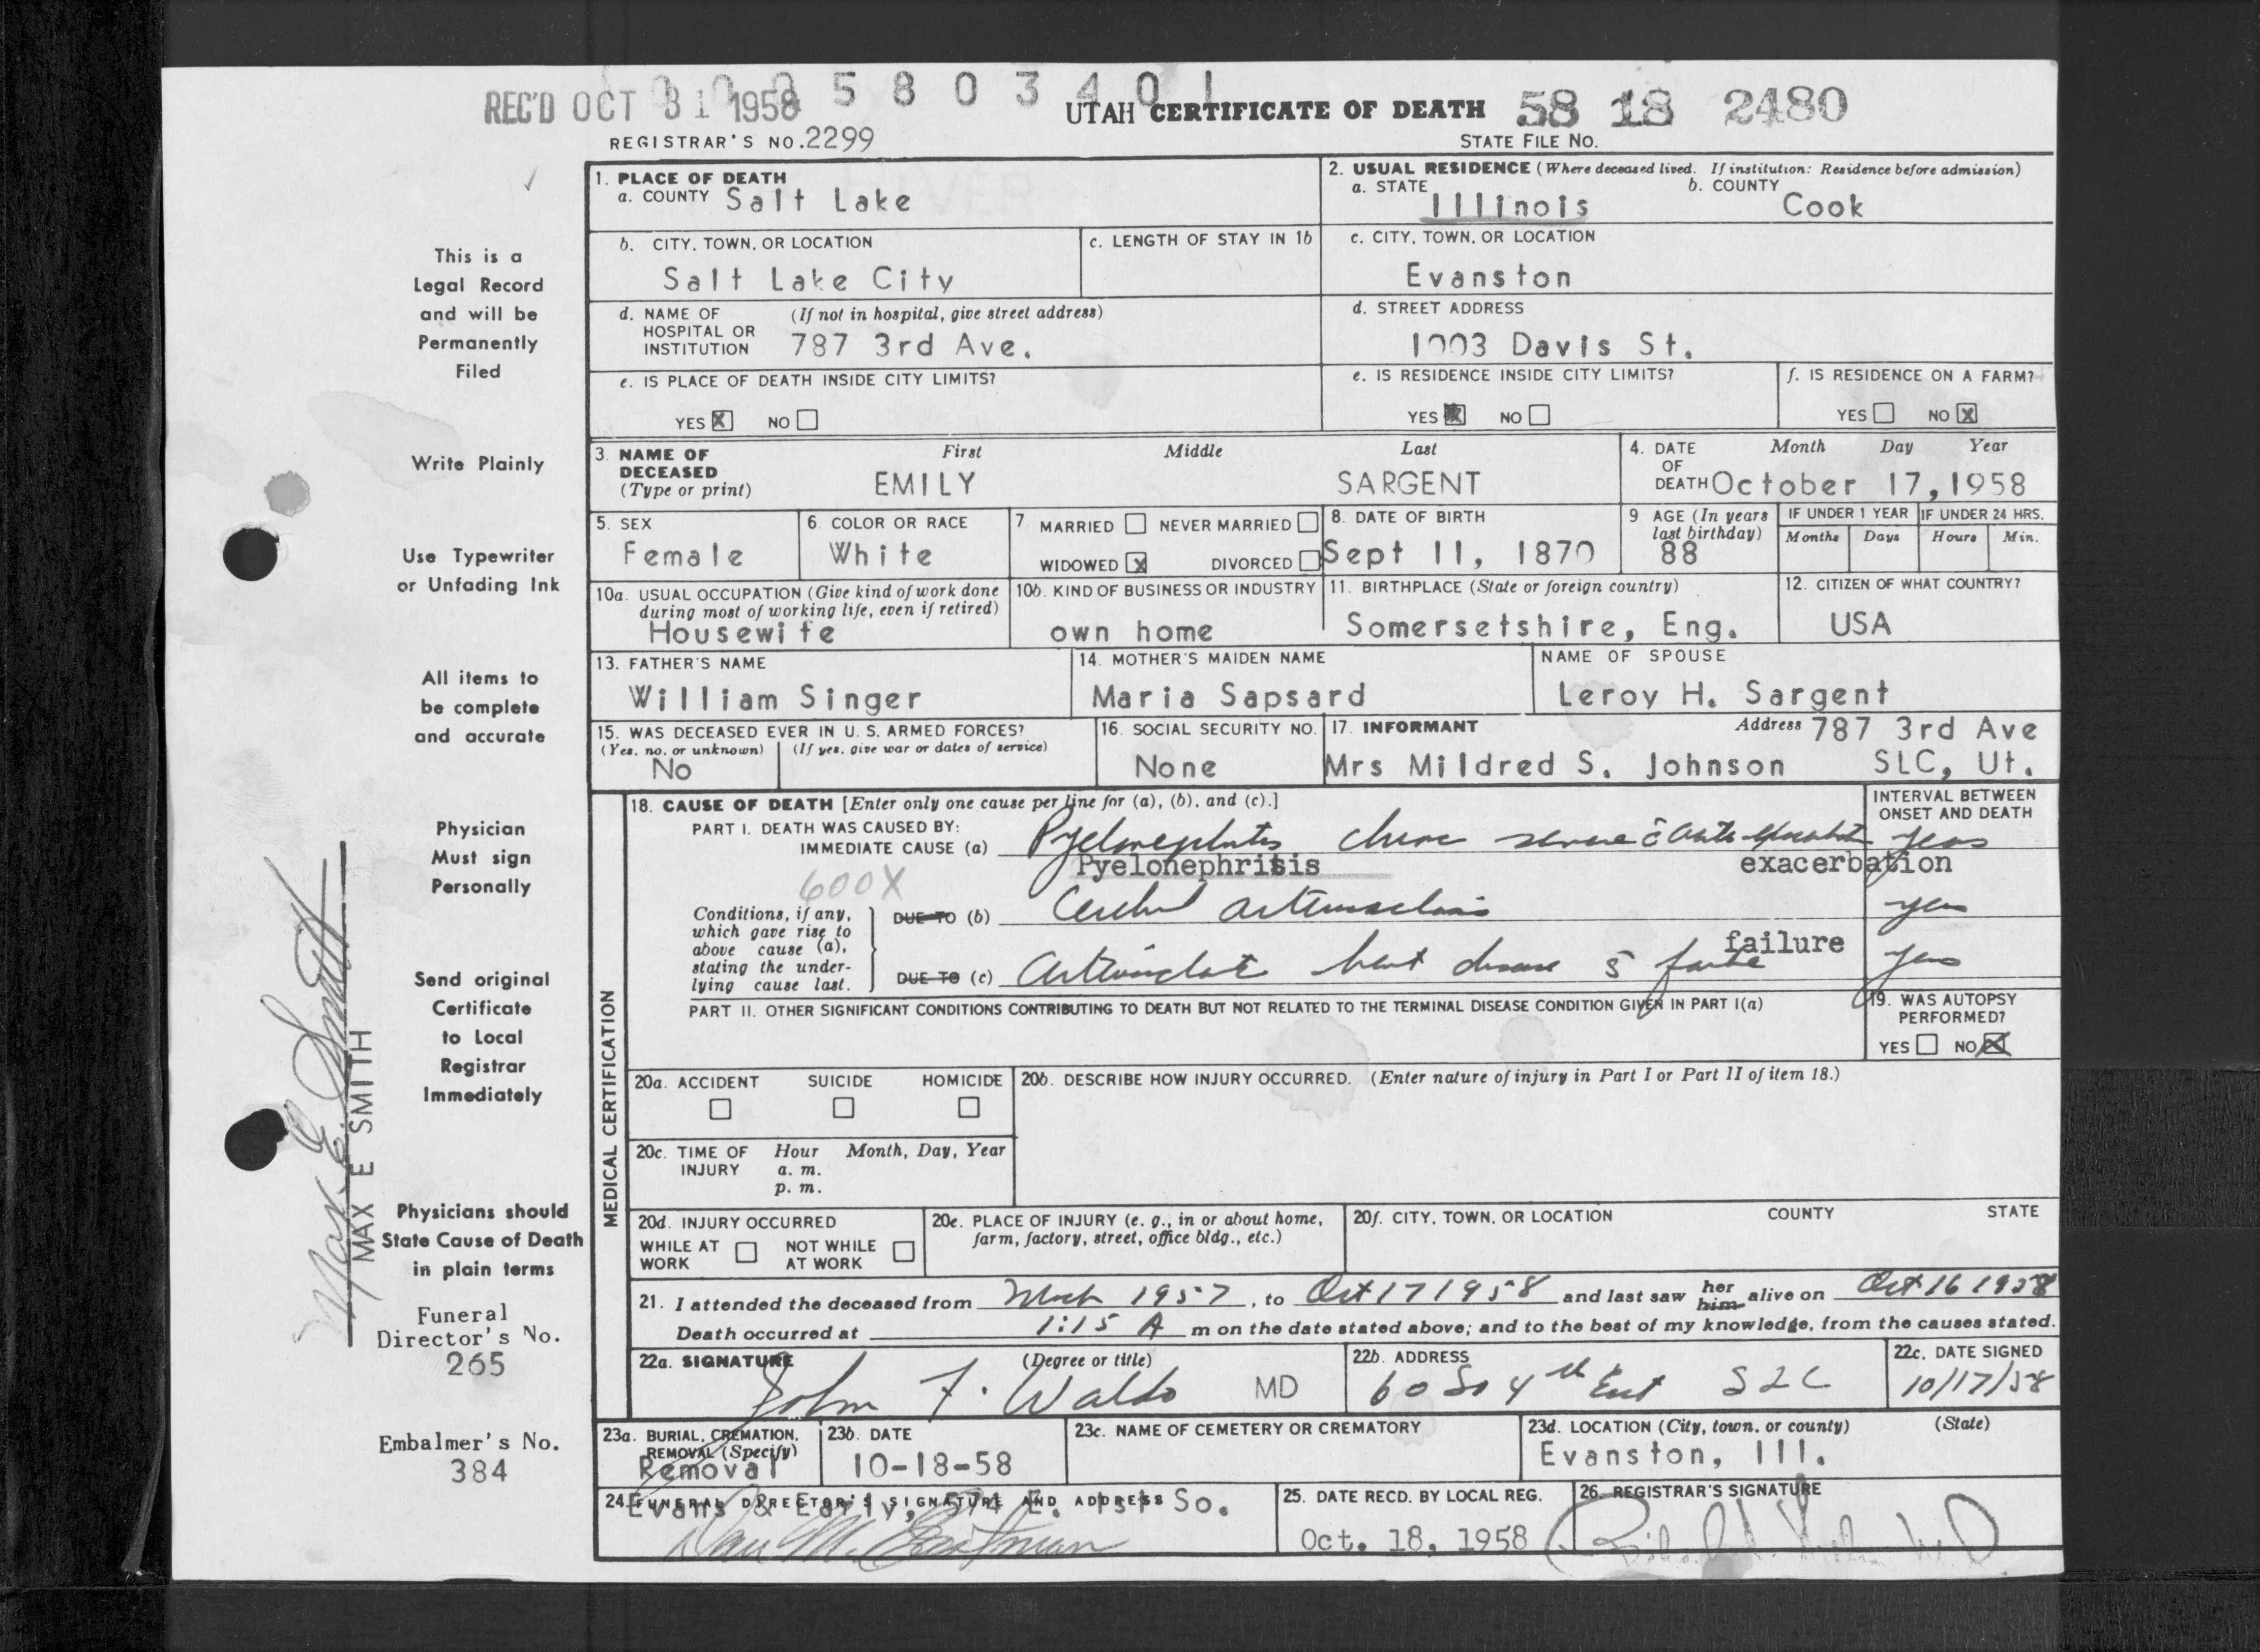 0 0 2 5 8 0 3 4 0 1
REC'D OCT 31 1958 UTAH CERTIFICATE OF DEATH 58 18 2480
REGISTRAR'S NO. 2299 STATE FILE NO.
This is a
Legal Record
and will be
Permanently
Filed
Write Plainly
Use Typewriter
or Unfading Ink
All items to
be complete
and accurate
Physician
Must sign
Personally
Send original
Certificate
to Local
Registrar
Immediately
Physicians should
State Cause of Death
in plain terms
Funeral
Director's No.
265
Embalmer's No.
384
Max E. Smith
MAX E SMITH
1. PLACE OF DEATH
a. COUNTY Salt Lake
2. USUAL RESIDENCE (Where deceased lived. If institution: Residence before admission)
a. STATE Illinois b. COUNTY Cook
b. CITY, TOWN, OR LOCATION Salt Lake City
c. LENGTH OF STAY IN 1b
c. CITY, TOWN, OR LOCATION Evanston
d. NAME OF HOSPITAL OR INSTITUTION (If not in hospital, give street address) 787 3rd Ave.
d. STREET ADDRESS 1003 Davis St.
e. IS PLACE OF DEATH INSIDE CITY LIMITS?
YES X NO
e. IS RESIDENCE INSIDE CITY LIMITS?
YES X NO
f. IS RESIDENCE ON A FARM?
YES NO X
3. NAME OF DECEASED (Type or print) First Middle Last
EMILY SARGENT
4. DATE OF DEATH Month Day Year
October 17, 1958
5. SEX Female
6. COLOR OR RACE White
7 MARRIED NEVER MARRIED
WIDOWED X DIVORCED
8. DATE OF BIRTH Sept 11, 1870
9 AGE (In years last birthday) 88
IF UNDER 1 YEAR Months Days
IF UNDER 24 HRS. Hours Min.
10a. USUAL OCCUPATION (Give kind of work done during most of working life, even if retired) Housewife
10b. KIND OF BUSINESS OR INDUSTRY own home
11. BIRTHPLACE (State or foreign country) Somersetshire, Eng.
12. CITIZEN OF WHAT COUNTRY? USA
13. FATHER'S NAME William Singer
14. MOTHER'S MAIDEN NAME Maria Sapsard
NAME OF SPOUSE Leroy H. Sargent
15. WAS DECEASED EVER IN U. S. ARMED FORCES?
(Yes, no, or unknown) (If yes, give war or dates of service)
No
16. SOCIAL SECURITY NO. None
17. INFORMANT Address 787 3rd Ave
Mrs Mildred S. Johnson SLC, Ut.
MEDICAL CERTIFICATION
18. CAUSE OF DEATH [Enter only one cause per line for (a), (b), and (c).]
INTERVAL BETWEEN ONSET AND DEATH
PART I. DEATH WAS CAUSED BY:
IMMEDIATE CAUSE (a) Pyelonephritis chronic severe c̄ acute exacerbation years
Pyelonephritis exacerbation
600X
Conditions, if any, which gave rise to above cause (a), stating the underlying cause last.
DUE TO (b) Cerebral arteriosclerosis years
failure
DUE TO (c) Arteriosclerotic heart disease s̄ failure years
PART II. OTHER SIGNIFICANT CONDITIONS CONTRIBUTING TO DEATH BUT NOT RELATED TO THE TERMINAL DISEASE CONDITION GIVEN IN PART I(a)
19. WAS AUTOPSY PERFORMED?
YES NO X
20a. ACCIDENT SUICIDE HOMICIDE
20b. DESCRIBE HOW INJURY OCCURRED. (Enter nature of injury in Part I or Part II of item 18.)
20c. TIME OF INJURY Hour Month, Day, Year
a. m.
p. m.
20d. INJURY OCCURRED
WHILE AT WORK NOT WHILE AT WORK
20e. PLACE OF INJURY (e. g., in or about home, farm, factory, street, office bldg., etc.)
20f. CITY, TOWN, OR LOCATION COUNTY STATE
21. I attended the deceased from March 1957, to Oct 17 1958 and last saw her him alive on Oct 16 1958
Death occurred at 1:15 A m on the date stated above; and to the best of my knowledge, from the causes stated.
22a. SIGNATURE (Degree or title)
John F. Waldo MD
22b. ADDRESS 60 So 4th East SLC
22c. DATE SIGNED 10/17/58
23a. BURIAL, CREMATION, REMOVAL (Specify) Removal
23b. DATE 10-18-58
23c. NAME OF CEMETERY OR CREMATORY
23d. LOCATION (City, town, or county) (State)
Evanston, Ill.
24. FUNERAL DIRECTOR'S SIGNATURE AND ADDRESS
Evans & Early, 574 E. 1st So.
25. DATE RECD. BY LOCAL REG. Oct. 18, 1958
26. REGISTRAR'S SIGNATURE